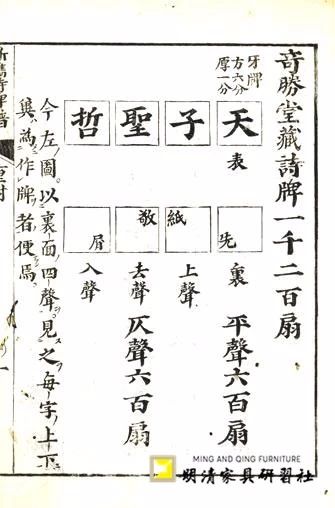 奇勝堂藏詩牌一千二百扇
牙牌
方六分
厚一分
天
表
先
裏
平聲六百扇
子
紙
上聲
聖
敬
去聲
仄聲六百扇
哲
屑
入聲
今左圖以裏面四聲見之每字上下
為作牌者便焉
MING AND QING FURNITURE
明清家具研習社